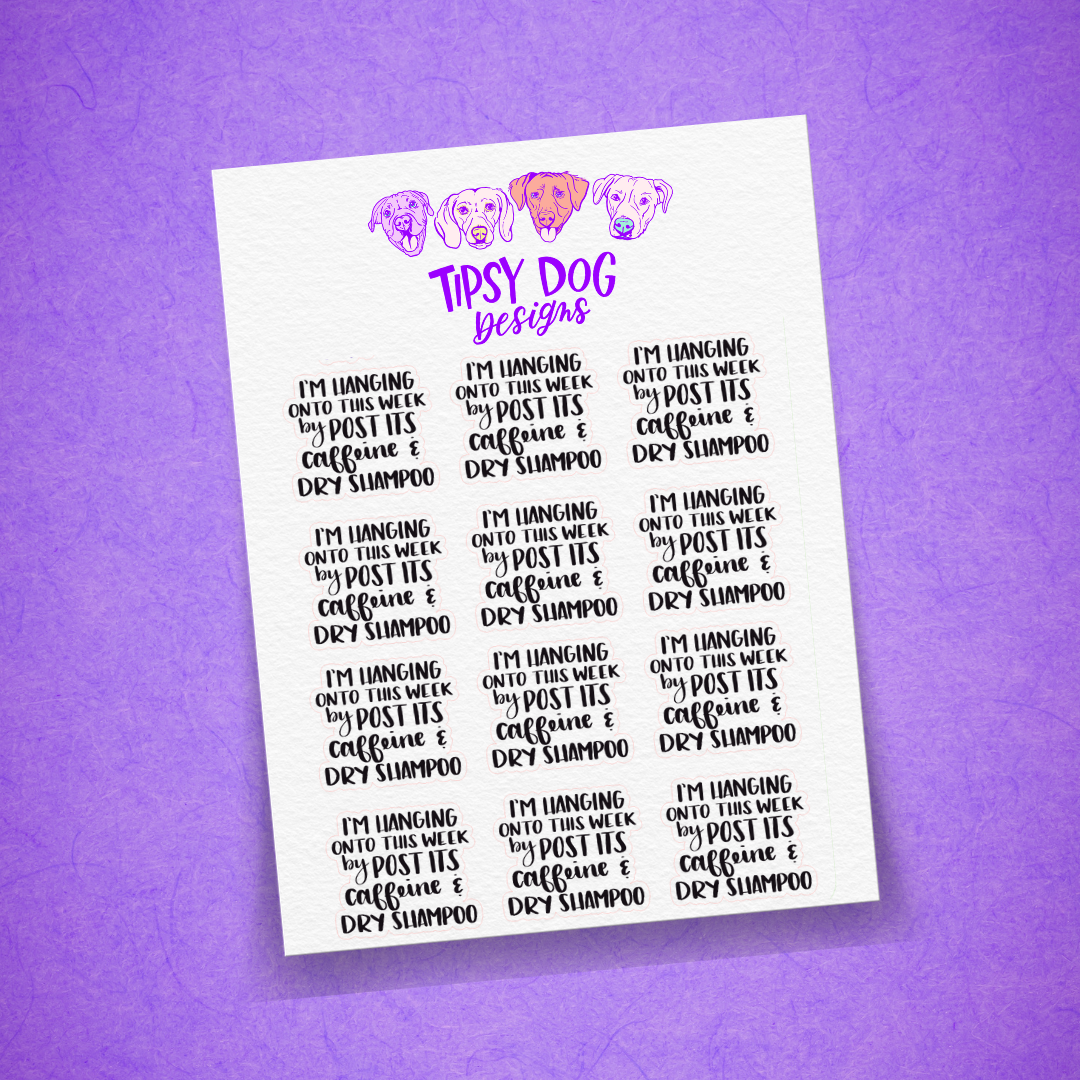 TIPSY DOG
Designs
I'M HANGING
ONTO THIS WEEK
by POST ITS
caffeine &
DRY SHAMPOO
I'M HANGING
ONTO THIS WEEK
by POST ITS
caffeine &
DRY SHAMPOO
I'M HANGING
ONTO THIS WEEK
by POST ITS
caffeine &
DRY SHAMPOO
I'M HANGING
ONTO THIS WEEK
by POST ITS
caffeine &
DRY SHAMPOO
I'M HANGING
ONTO THIS WEEK
by POST ITS
caffeine &
DRY SHAMPOO
I'M HANGING
ONTO THIS WEEK
by POST ITS
caffeine &
DRY SHAMPOO
I'M HANGING
ONTO THIS WEEK
by POST ITS
caffeine &
DRY SHAMPOO
I'M HANGING
ONTO THIS WEEK
by POST ITS
caffeine &
DRY SHAMPOO
I'M HANGING
ONTO THIS WEEK
by POST ITS
caffeine &
DRY SHAMPOO
I'M HANGING
ONTO THIS WEEK
by POST ITS
caffeine &
DRY SHAMPOO
I'M HANGING
ONTO THIS WEEK
by POST ITS
caffeine &
DRY SHAMPOO
I'M HANGING
ONTO THIS WEEK
by POST ITS
caffeine &
DRY SHAMPOO